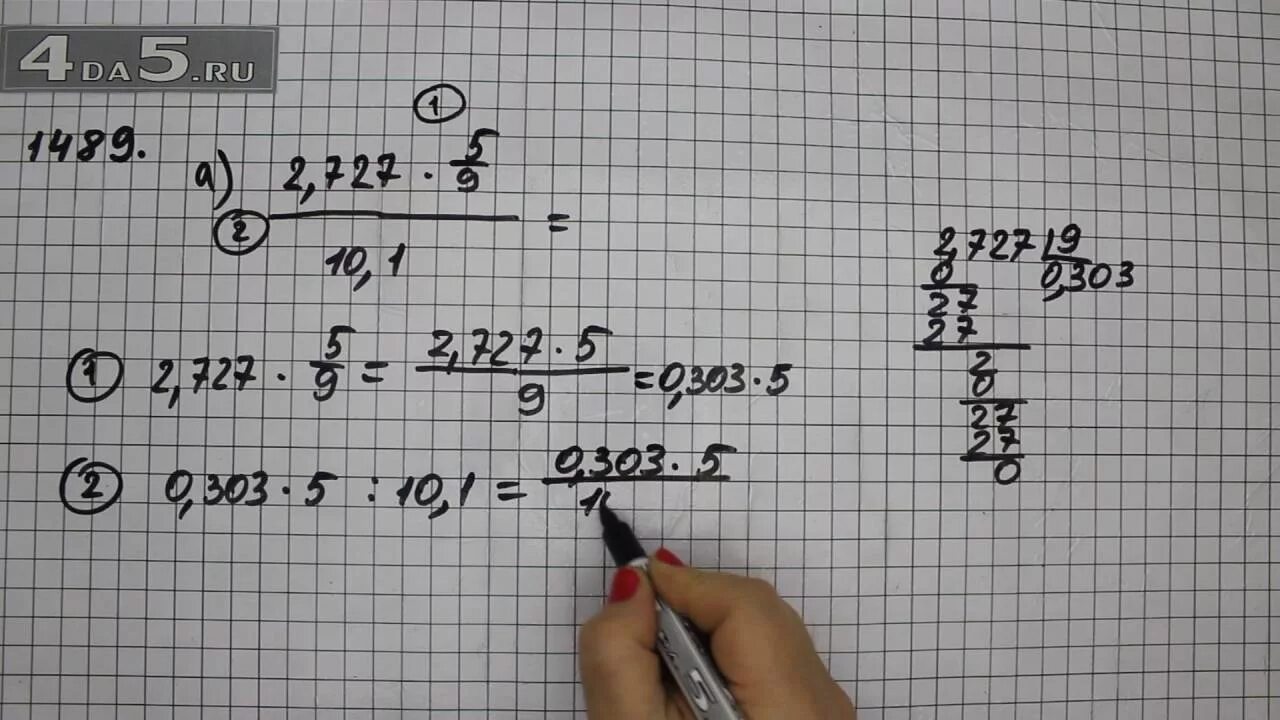 4DA5.RU
1489.
①
а) 2,727 · 5/9
② ―――― =
10,1
① 2,727 · 5/9 = 2,727 · 5 / 9 = 0,303 · 5
② 0,303 · 5 : 10,1 = 0,303 · 5 / 1
2,727 | 9
0 0,303
27
27
2
0
27
27
0
5